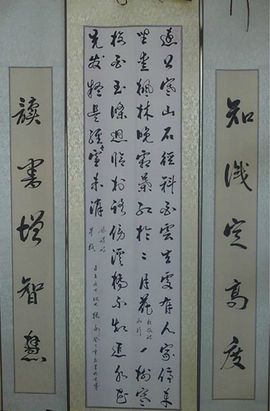 知識定高度
遠上寒山石徑斜白雲生處有人家停車
坐愛楓林晚霜葉紅於二月花 杜牧詩 山行 一樹寒
梅白玉條迥臨村路傍溪橋不知近水花
先發疑是經冬雪未消
早梅
讀書增智慧